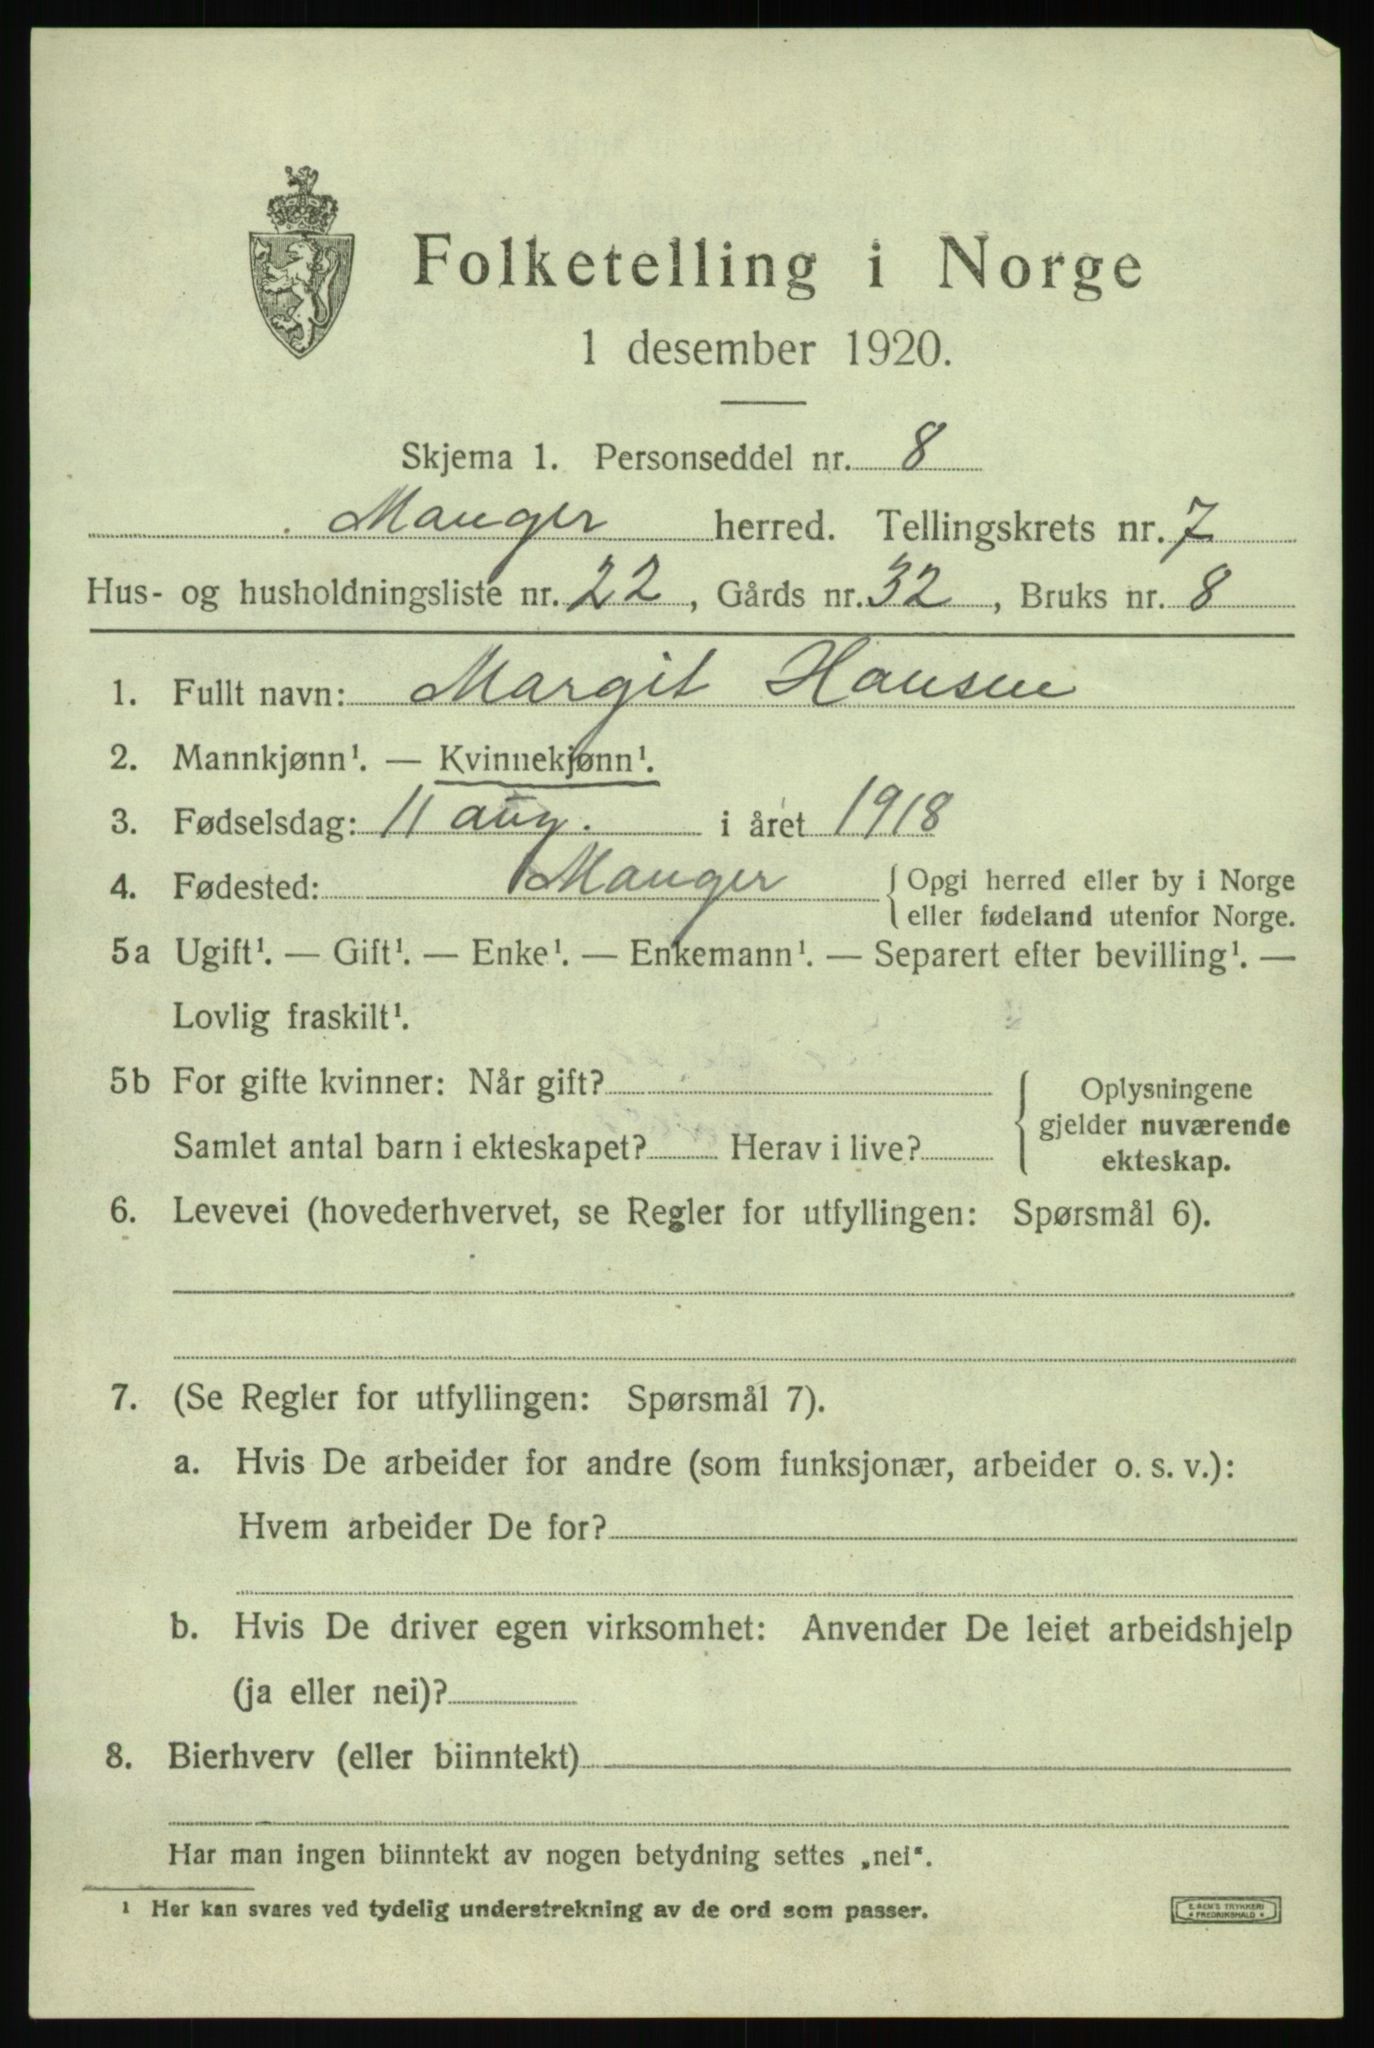 Folketelling i Norge
1 desember 1920.
Skjema 1. Personseddel nr. 8
Manger herred. Tellingskrets nr. 7
Hus- og husholdningsliste nr. 22, Gårds nr. 32, Bruks nr. 8
1. Fullt navn: Margit Hansen
2. Mannkjønn¹. — Kvinnekjønn¹.
3. Fødselsdag: 11 aug. i året 1918
4. Fødested: Manger { Opgi herred eller by i Norge
eller fødeland utenfor Norge.
5a Ugift¹. — Gift¹. — Enke¹. — Enkemann¹. — Separert efter bevilling¹. —
Lovlig fraskilt¹.
5b For gifte kvinner: Når gift? { Oplysningene
gjelder nuværende
Samlet antal barn i ekteskapet? Herav i live?
ekteskap.
6. Levevei (hovederhvervet, se Regler for utfyllingen: Spørsmål 6).
7. (Se Regler for utfyllingen: Spørsmål 7).
a. Hvis De arbeider for andre (som funksjonær, arbeider o. s. v.):
Hvem arbeider De for?
b. Hvis De driver egen virksomhet: Anvender De leiet arbeidshjelp
(ja eller nei)?
8. Bierhverv (eller biinntekt)
Har man ingen biinntekt av nogen betydning settes „nei“.
¹ Her kan svares ved tydelig understrekning av de ord som passer.
E. SEM'S TRYKKERI
* FREDRIKSHALD *